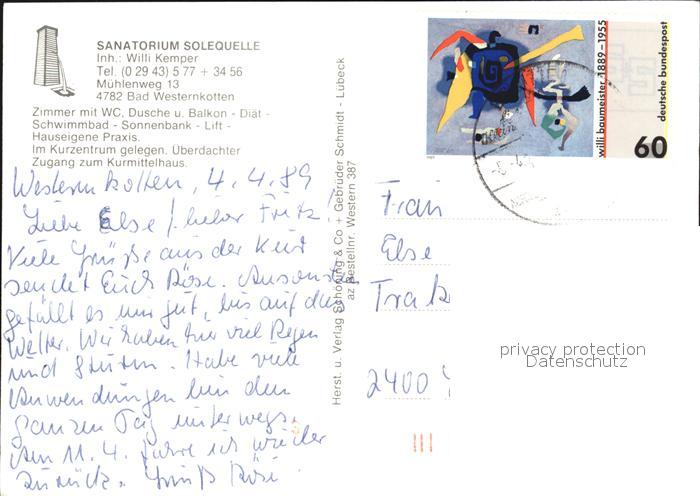 SANATORIUM SOLEQUELLE
Inh.: Willi Kemper
Tel. (0 29 43) 5 77 + 34 56
Mühlenweg 13
4782 Bad Westernkotten
Zimmer mit WC, Dusche u. Balkon - Diät -
Schwimmbad - Sonnenbank - Lift -
Hauseigene Praxis.
Im Kurzentrum gelegen. Überdachter
Zugang zum Kurmittelhaus.
Westernkotten, 4.4.89
Liebe Else / lieber Fritz!
Viele Grüße aus der Kur
sendet Euch Rösi. Ansonsten
gefällt es mir gut, bis auf das
Wetter. Wir haben nur viel Regen
und Sturm. Habe viele
Anwendungen bin den
ganzen Tag unterwegs.
Am 11.4. fahre ich wieder
zurück. Gruß Rösi
Herst. u. Verlag Schöning & Co + Gebrüder Schmidt - Lübeck
az Bestellnr. Western 387
willi baumeister 1889-1955
deutsche bundespost
60
Frau
Else
2400
privacy protection
Datenschutz